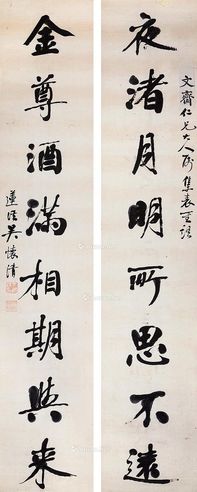 文齋仁兄大人屬集表聖語
夜渚月明所思不遠
金尊酒滿相期與来
蓮溪吳懷清